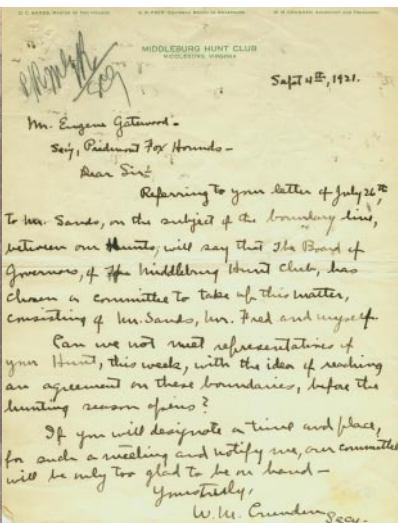 D. C. SANDS, MASTER OF FOXHOUNDS
MIDDLEBURG HUNT CLUB
MIDDLEBURG, VIRGINIA
Sept 4th, 1921.
Mr. Eugene Gatewood -
Secy, Piedmont Fox Hounds -
Dear Sir:
Referring to your letter of July 26th
to Mr. Sands, on the subject of the boundary line,
between our Hunts, will say that The Board of
Governors, of The Middleburg Hunt Club, has
chosen a committee to take up this matter,
consisting of Mr. Sands, Mr. Fred and myself.
Can we not meet representatives of
your Hunt, this week, with the idea of reaching
an agreement on these boundaries, before the
hunting season opens?
If you will designate a time and place,
for such a meeting and notify me, our committee
will be only too glad to be on hand -
Yours truly,
W. M. Crunden
Secy.